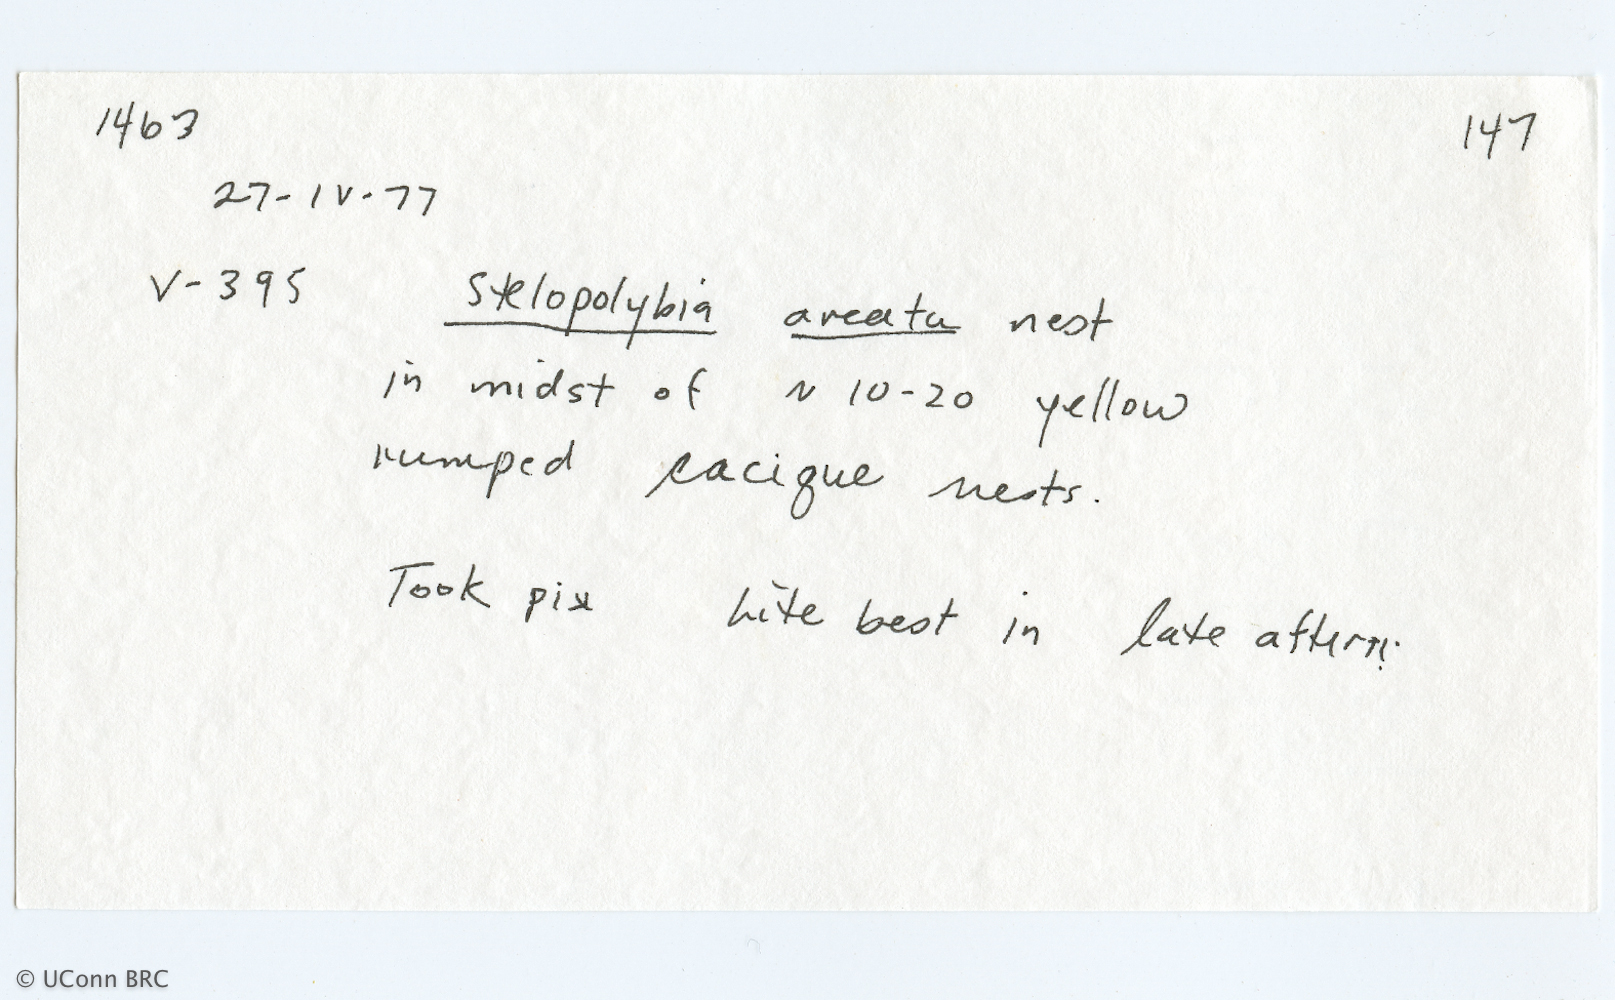 1463 147
27-IV-77
V-395 Stelopolybia areata nest
in midst of ~ 10-20 yellow
rumped cacique nests.
Took pix Lite best in late aftern.
© UConn BRC